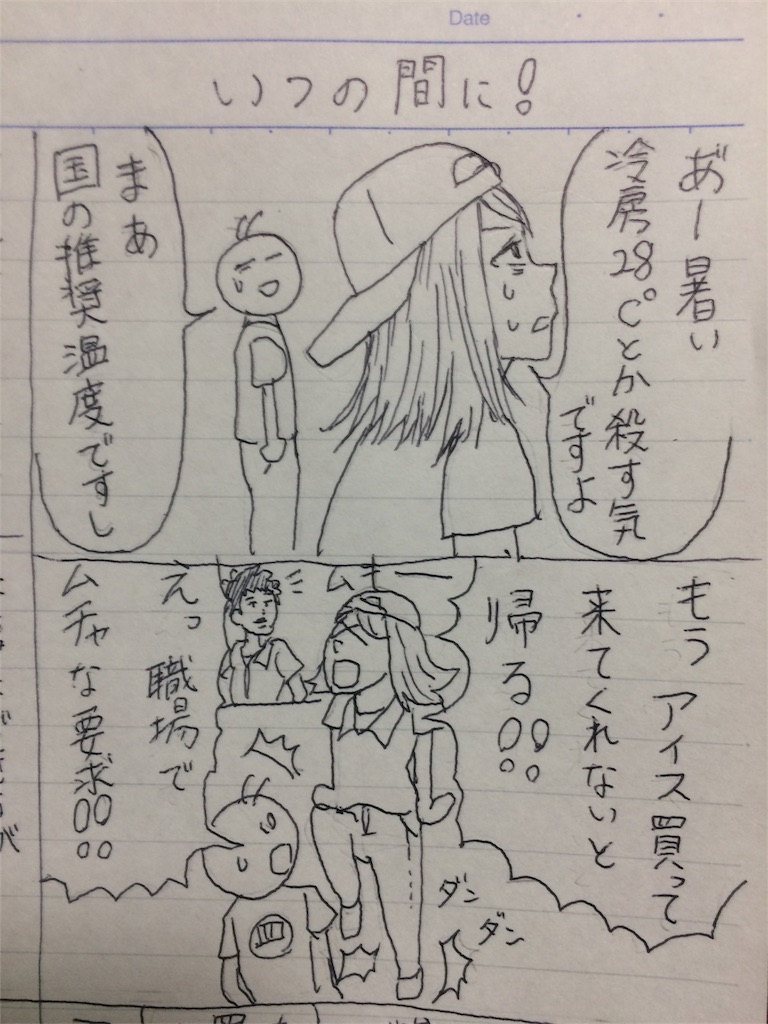 Date
いつの間に!
あ゛ー暑い
冷房28℃とか殺す気
ですよ
まあ
国の推奨温度ですし
もうアイス買って
来てくれないと
帰る!!
ムキー
えっ職場で
ムチャな要求!!
皿
ダン
ダン